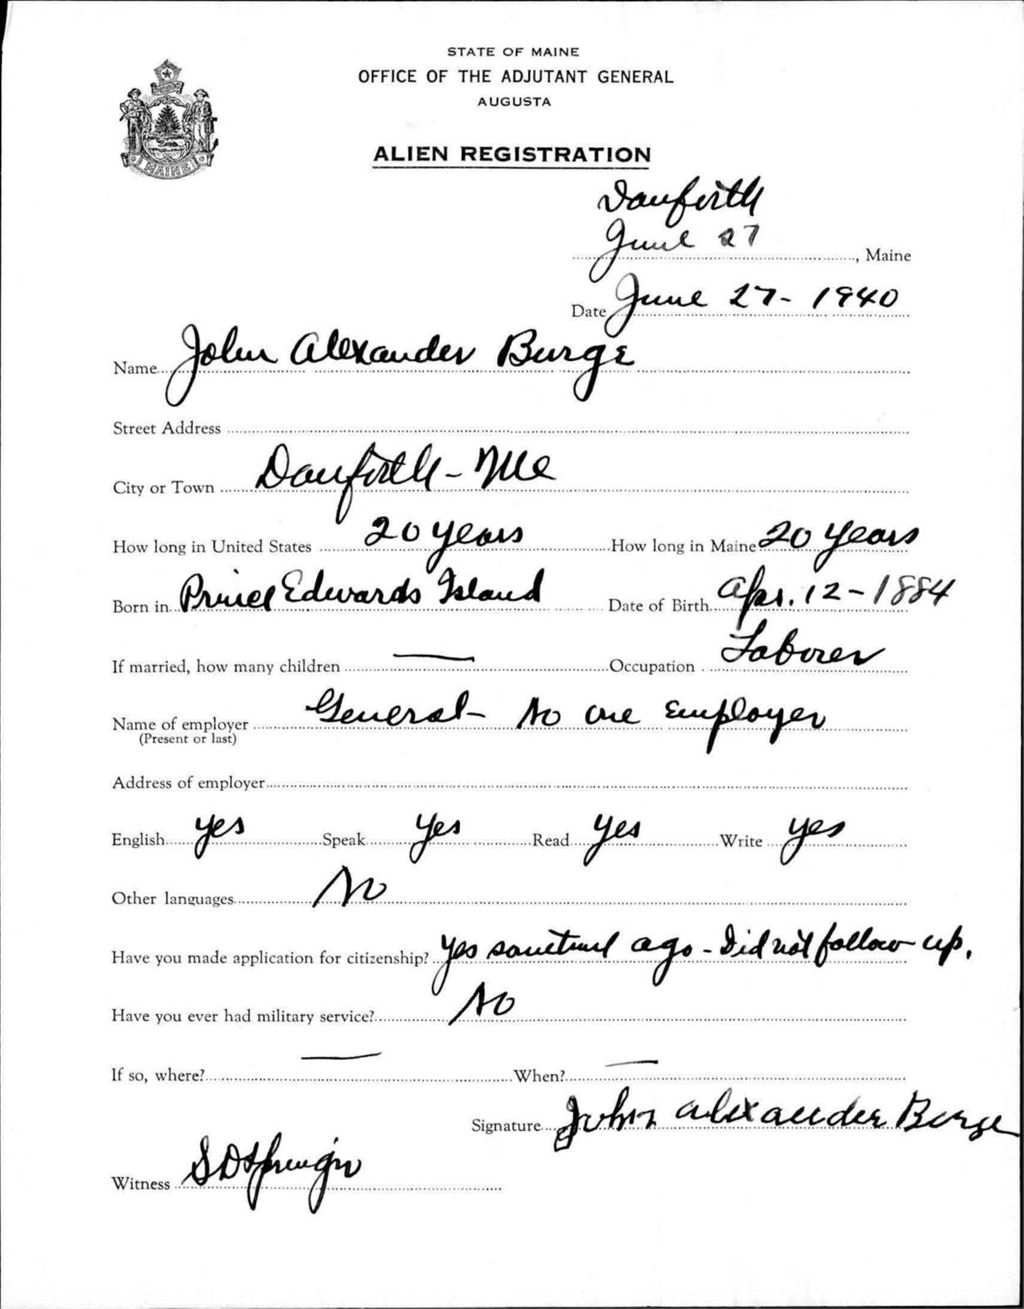 STATE OF MAINE
OFFICE OF THE ADJUTANT GENERAL
AUGUSTA
MAINE
ALIEN REGISTRATION
Danforth
June 27, Maine
Date June 27 - 1940
Name John Alexander Burge
Street Address
City or Town Danforth - Me
How long in United States 20 years How long in Maine 20 years
Born in Prince Edwards Island Date of Birth Apr. 12 - 1884
If married, how many children — Occupation Laborer
Name of employer General - No one Employer
(Present or last)
Address of employer
English yes Speak yes Read yes Write yes
Other languages No
Have you made application for citizenship? yes ago - Did not follow up.
Have you ever had military service? No
If so, where? — When? —
Signature John Alexander Burge
Witness